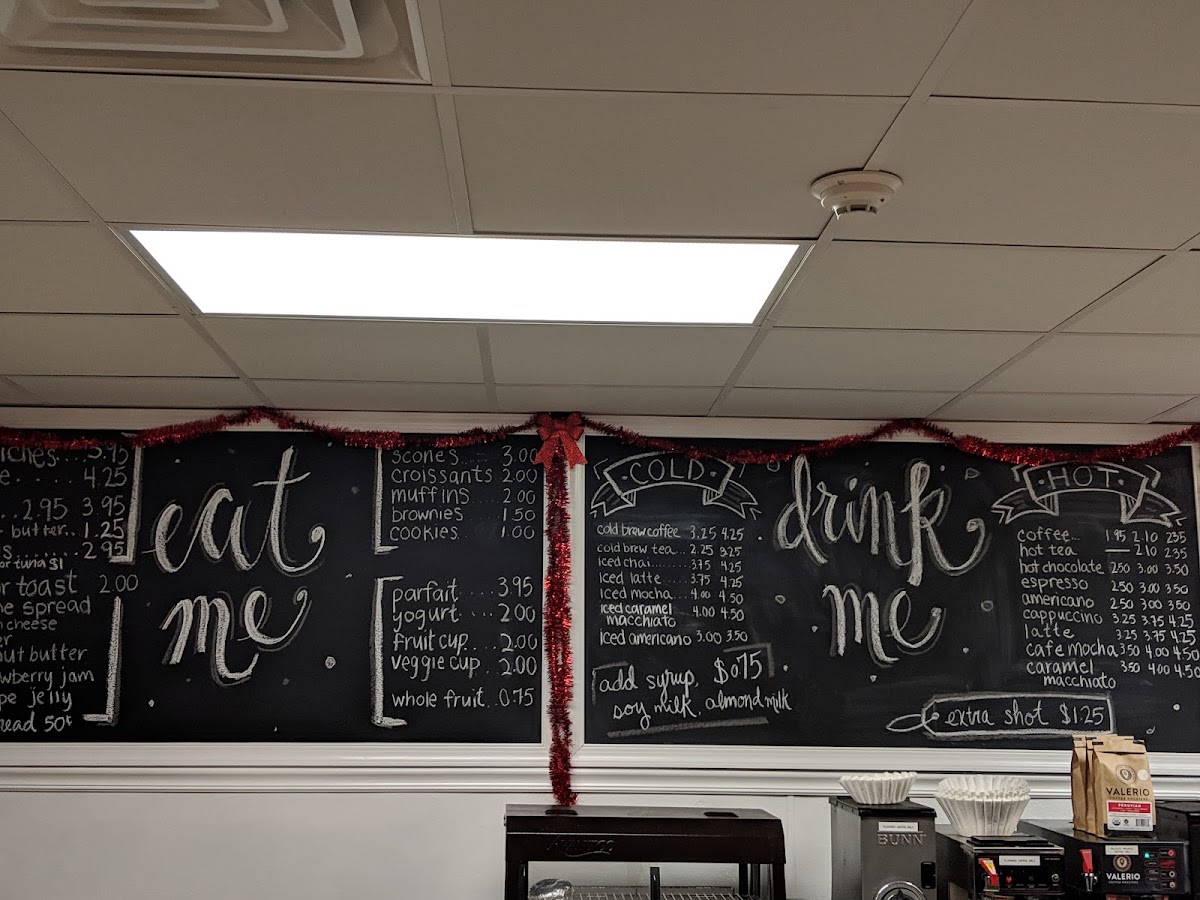 3.95
4.25
2.95 3.95
butter.. 1.25
2.95
or tuna $1
or toast 2.00
spread
cheese
butter
jam
jelly
50¢
eat
me
scones... 3.00
croissants 2.00
muffins ... 2.00
brownies ... 1.50
cookies ... 1.00
parfait ... 3.95
yogurt ... 2.00
fruit cup... 2.00
veggie cup.. 2.00
whole fruit. 0.75
COLD
cold brew coffee 3.25 4.25
cold brew tea... 2.25 3.25
iced chai......... 3.75 4.25
iced latte ...... 3.75 4.25
iced mocha... 4.00 4.50
iced caramel 4.00 4.50
macchiato
iced americano 3.00 3.50
add syrup, $0.75
soy milk, almond milk
drink
me
HOT
coffee... 1.95 2.10 2.35
hot tea — 2.10 2.35
hot chocolate 2.50 3.00 3.50
espresso 2.50 3.00 3.50
americano 2.50 3.00 3.50
cappuccino 3.25 3.75 4.25
latte 3.25 3.75 4.25
cafe mocha 3.50 4.00 4.50
caramel 3.50 4.00 4.50
macchiato
extra shot $1.25
BUNN
VALERIO
COFFEE ROASTERS
PERUVIAN
VALERIO